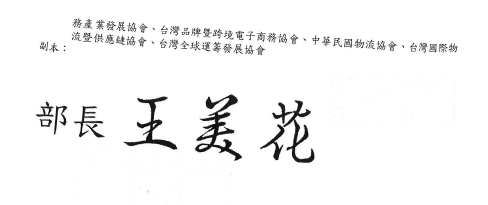 務產業發展協會、台灣品牌暨跨境電子商務協會、中華民國物流協會、台灣國際物
流暨供應鏈協會、台灣全球運籌發展協會
副本：
部長 王美花